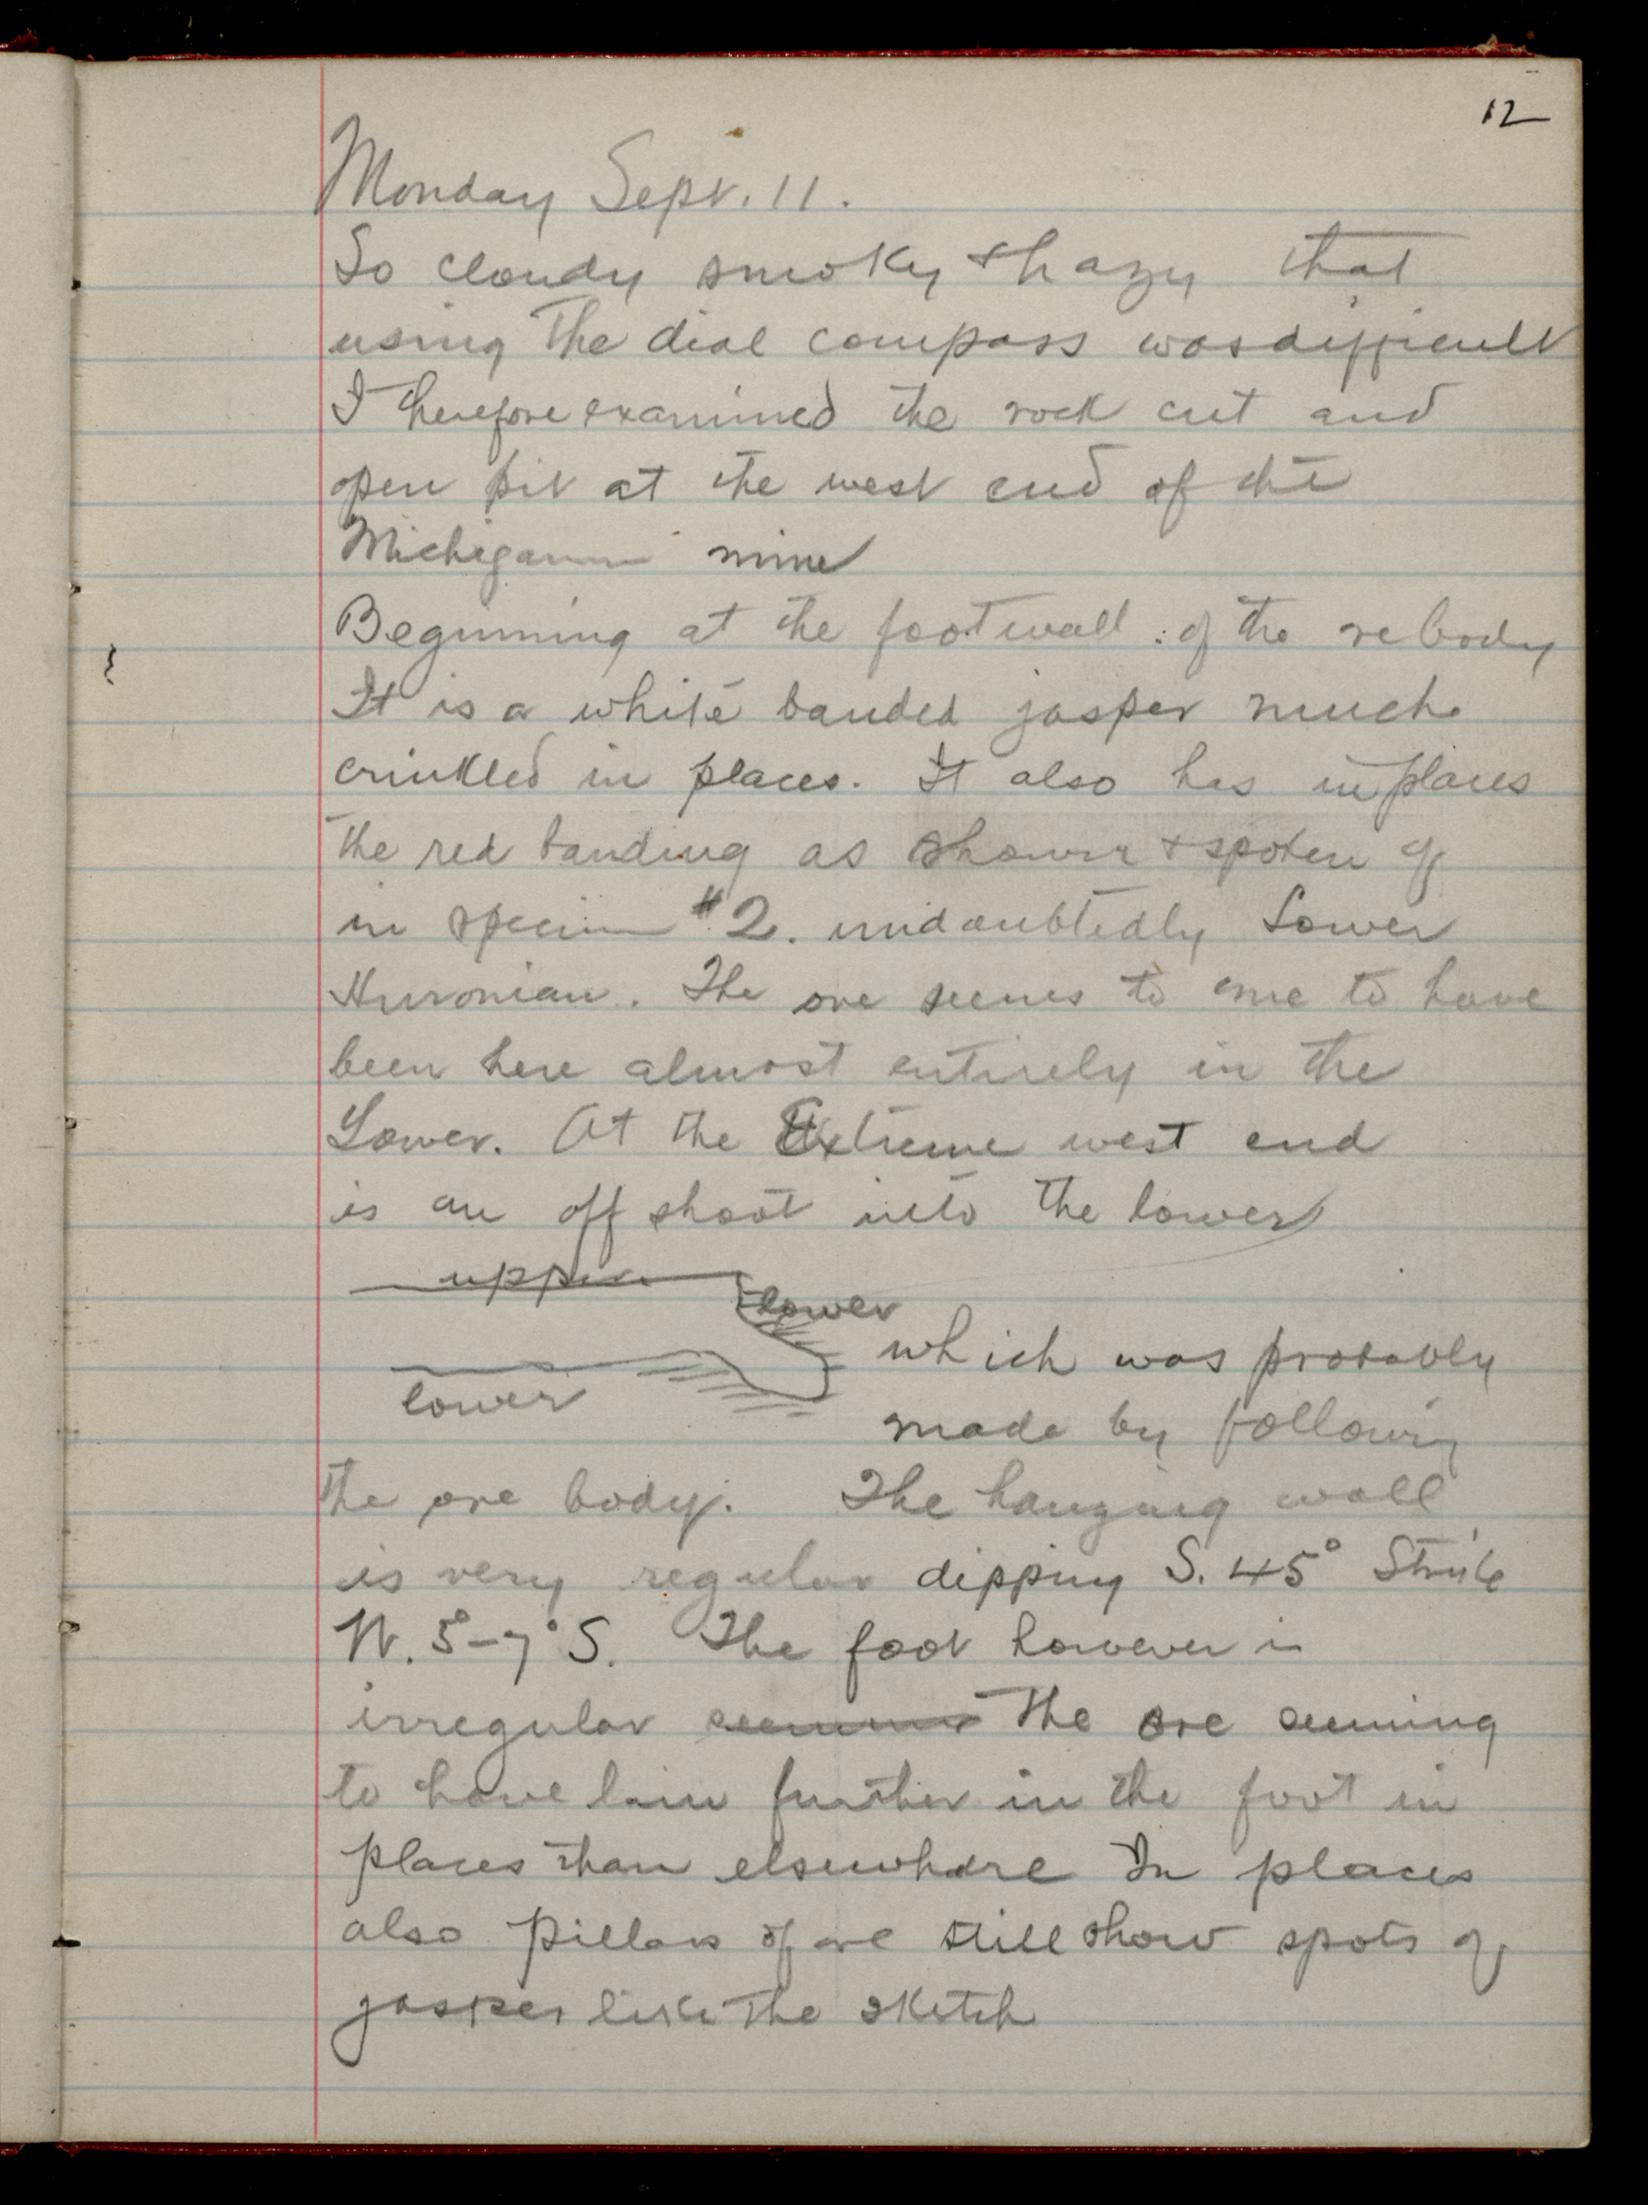 12
Monday Sept. 11.
So cloudy smoky & hazy that
using the dial compass was difficult
I therefore examined the rock cut and
open pit at the west end of the
Michigamme mine
Beginning at the foot wall : of the ore body
It is a white banded jasper much
crinkled in places. It also has in places
the red banding as shown & spoken of
in specim #2. undoubtedly Lower
Huronian. The ore seems to me to have
been here almost entirely in the
Lower. At the Extreme west end
is an off shoot into the lower
upper
lower
which was probably
lower
made by following
the ore body. The hanging wall
is very regular dipping S. 45° Strike
W. 5°-7° S. The foot however is
irregular seeming the ore seeming
to have lain further in the foot in
places than elsewhere In places
also pillars of ore still show spots of
jasper like the sketch